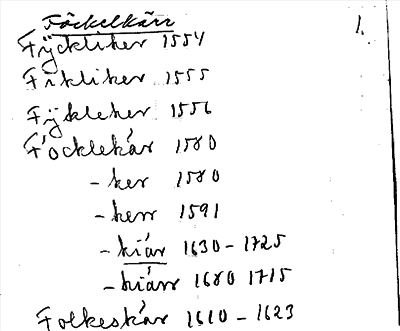 Föckelkärr 1.
Fÿckliker 1554
Fikliker 1555
Fÿkleker 1556
Föcklekär 1580
- ker 1580
- kerr 1591
- kiär 1630 - 1725
- kiärr 1680 1715
Folkeskär 1610 - 1623